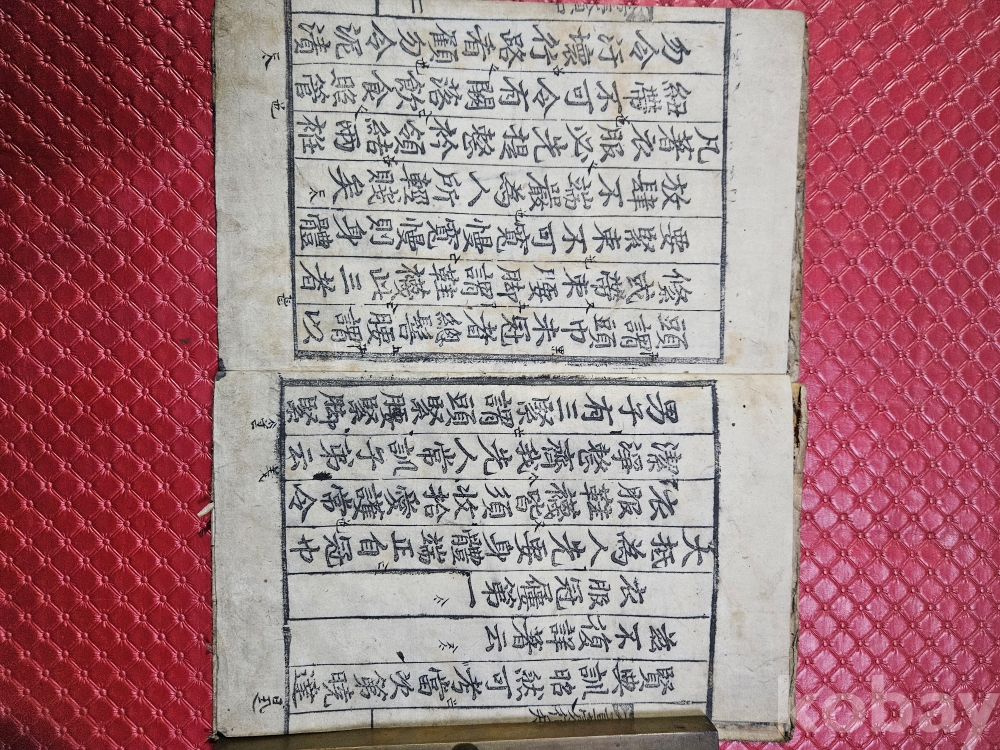 賢典訓昭然可考當次第曉達
玆不復詳著云
衣服冠屨第一
大抵為人先要身體端正自冠巾
衣服鞋襪皆須收拾愛護常令
潔淨整齊我先人常訓子弟云
男子有三緊謂頭緊腰緊脚緊
頭謂頭巾未冠者總髻腰謂以
絛或帶束腰脚謂鞋襪此三者
要緊束不可寬慢寬慢則身體
放肆不端嚴為人所輕賤矣
凡著衣服必先提整衿領結兩衽
紐帶不可令有闕落飮食照管
勿令汙壞行路看顧勿令泥漬
kobay